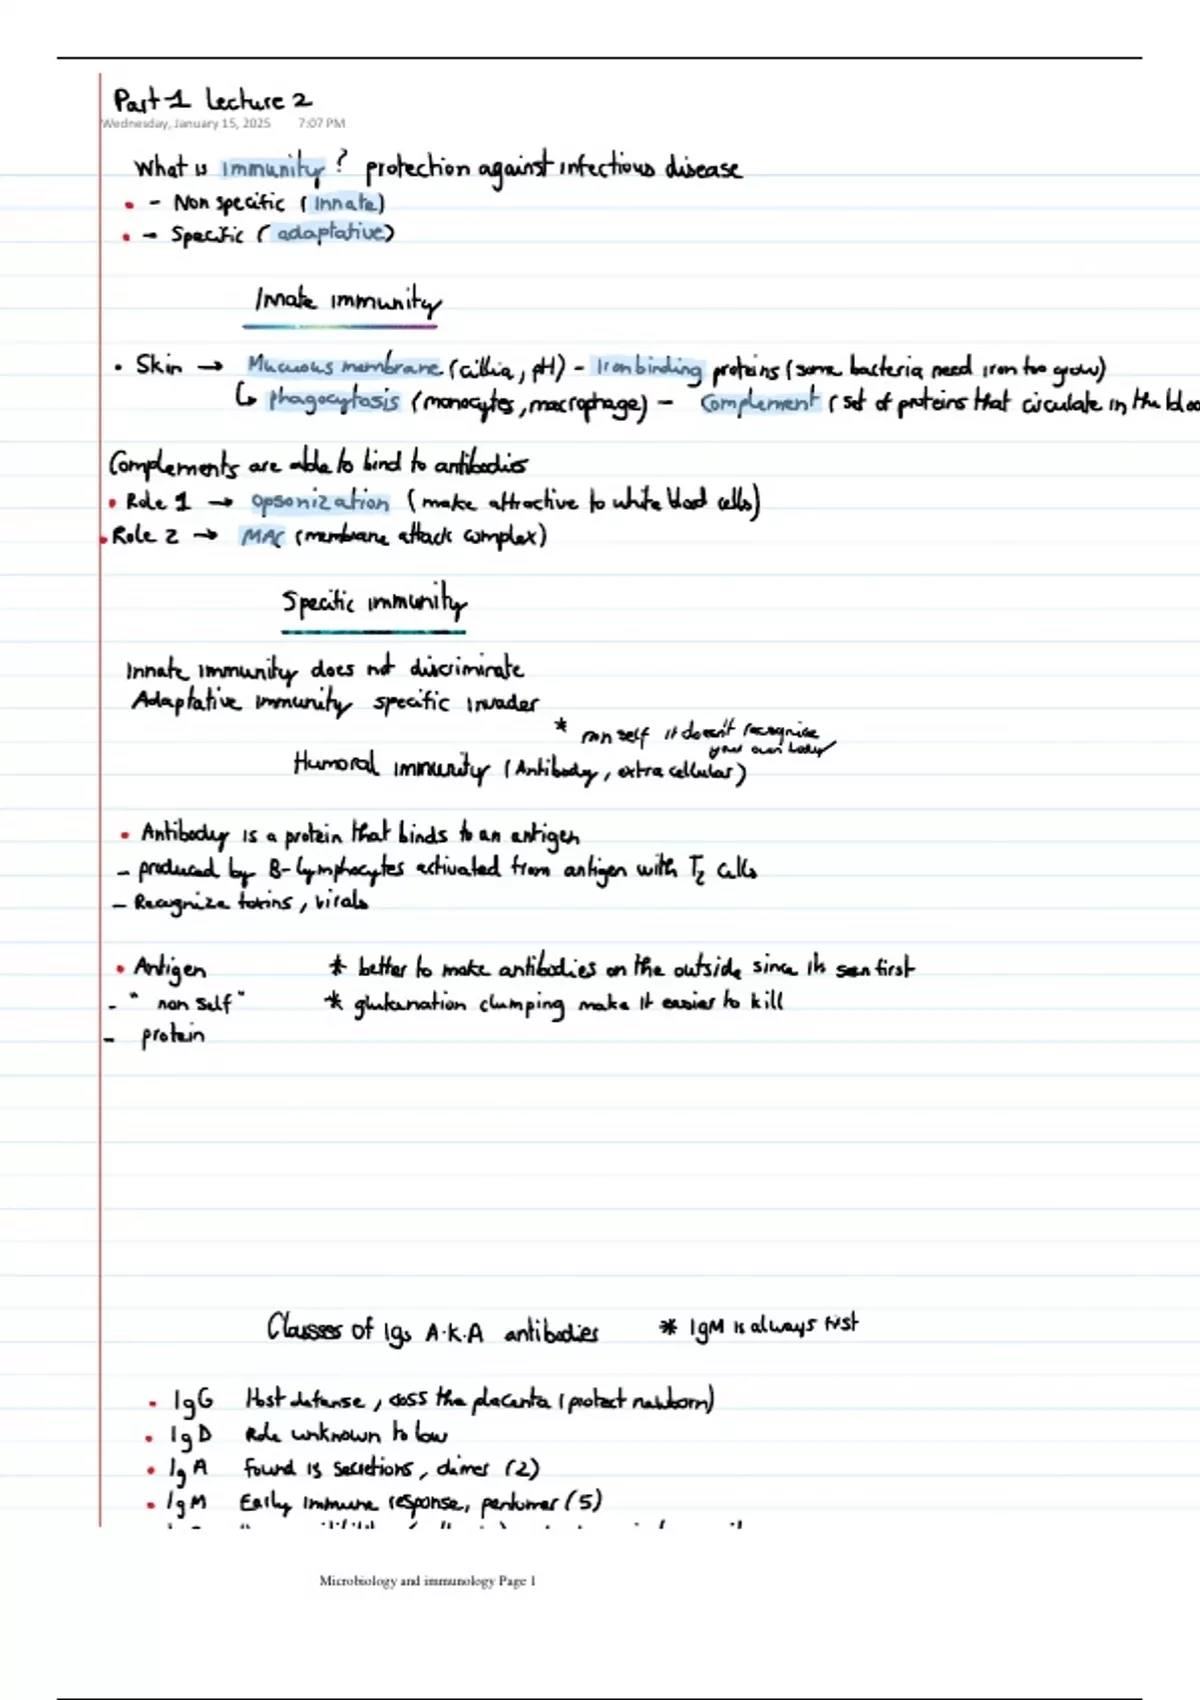 Part 1 Lecture 2
Wednesday, January 15, 2025 7:07 PM
What is immunity? protection against infectious disease
• - Non specific (Innate)
• - Specific (adaptative)
Innate immunity
• Skin → Mucuous membrane (cillia, pH) - Iron binding proteins (some bacteria need iron too grow)
↳ phagocytosis (monocytes, macrophage) - Complement (set of proteins that circulate in the bloo
Complements are able to bind to antibodies
• Role 1 → opsonization (make attractive to white blood cells)
• Role 2 → MAC (membrane attack complex)
Specific immunity
Innate immunity does not discriminate
Adaptative immunity specific invader
* non self it doesn't recognise
your own body
Humoral immunity (Antibody, extracellular)
• Antibody is a protein that binds to an antigen
- produced by B-lymphocytes activated from antigen with T2 cells
- Recognize toxins, virals
• Antigen * better to make antibodies on the outside since its seen first
- "non self" * glutanation clumping make it easier to kill
- protein
Classes of Igs A.K.A antibodies * IgM is always first
• IgG Host defense, coss the placenta (protect newborn)
• IgD Role unknown to low
• IgA found is secretions, dimer (2)
• IgM Early immune response, pentumer (5)
Microbiology and immunology Page 1